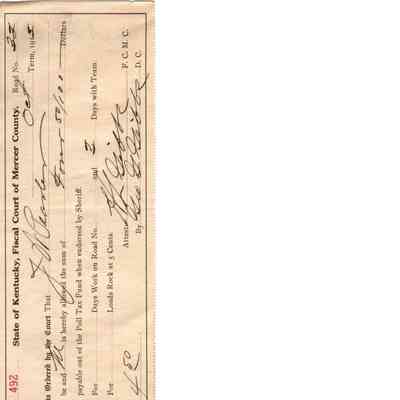 492 State of Kentucky, Fiscal Court of Mercer County, Road No. 32
Is Ordered by the Court That Oct Term, 191
be and is hereby allowed the sum of Four 50/100 Dollars
payable out of the Poll Tax Fund when endorsed by Sheriff.
For Days Work on Road No. and 3 Days with Team
For Loads Rock at 5 Cents.
4 50 Attest F. C. M. C.
By D. C.